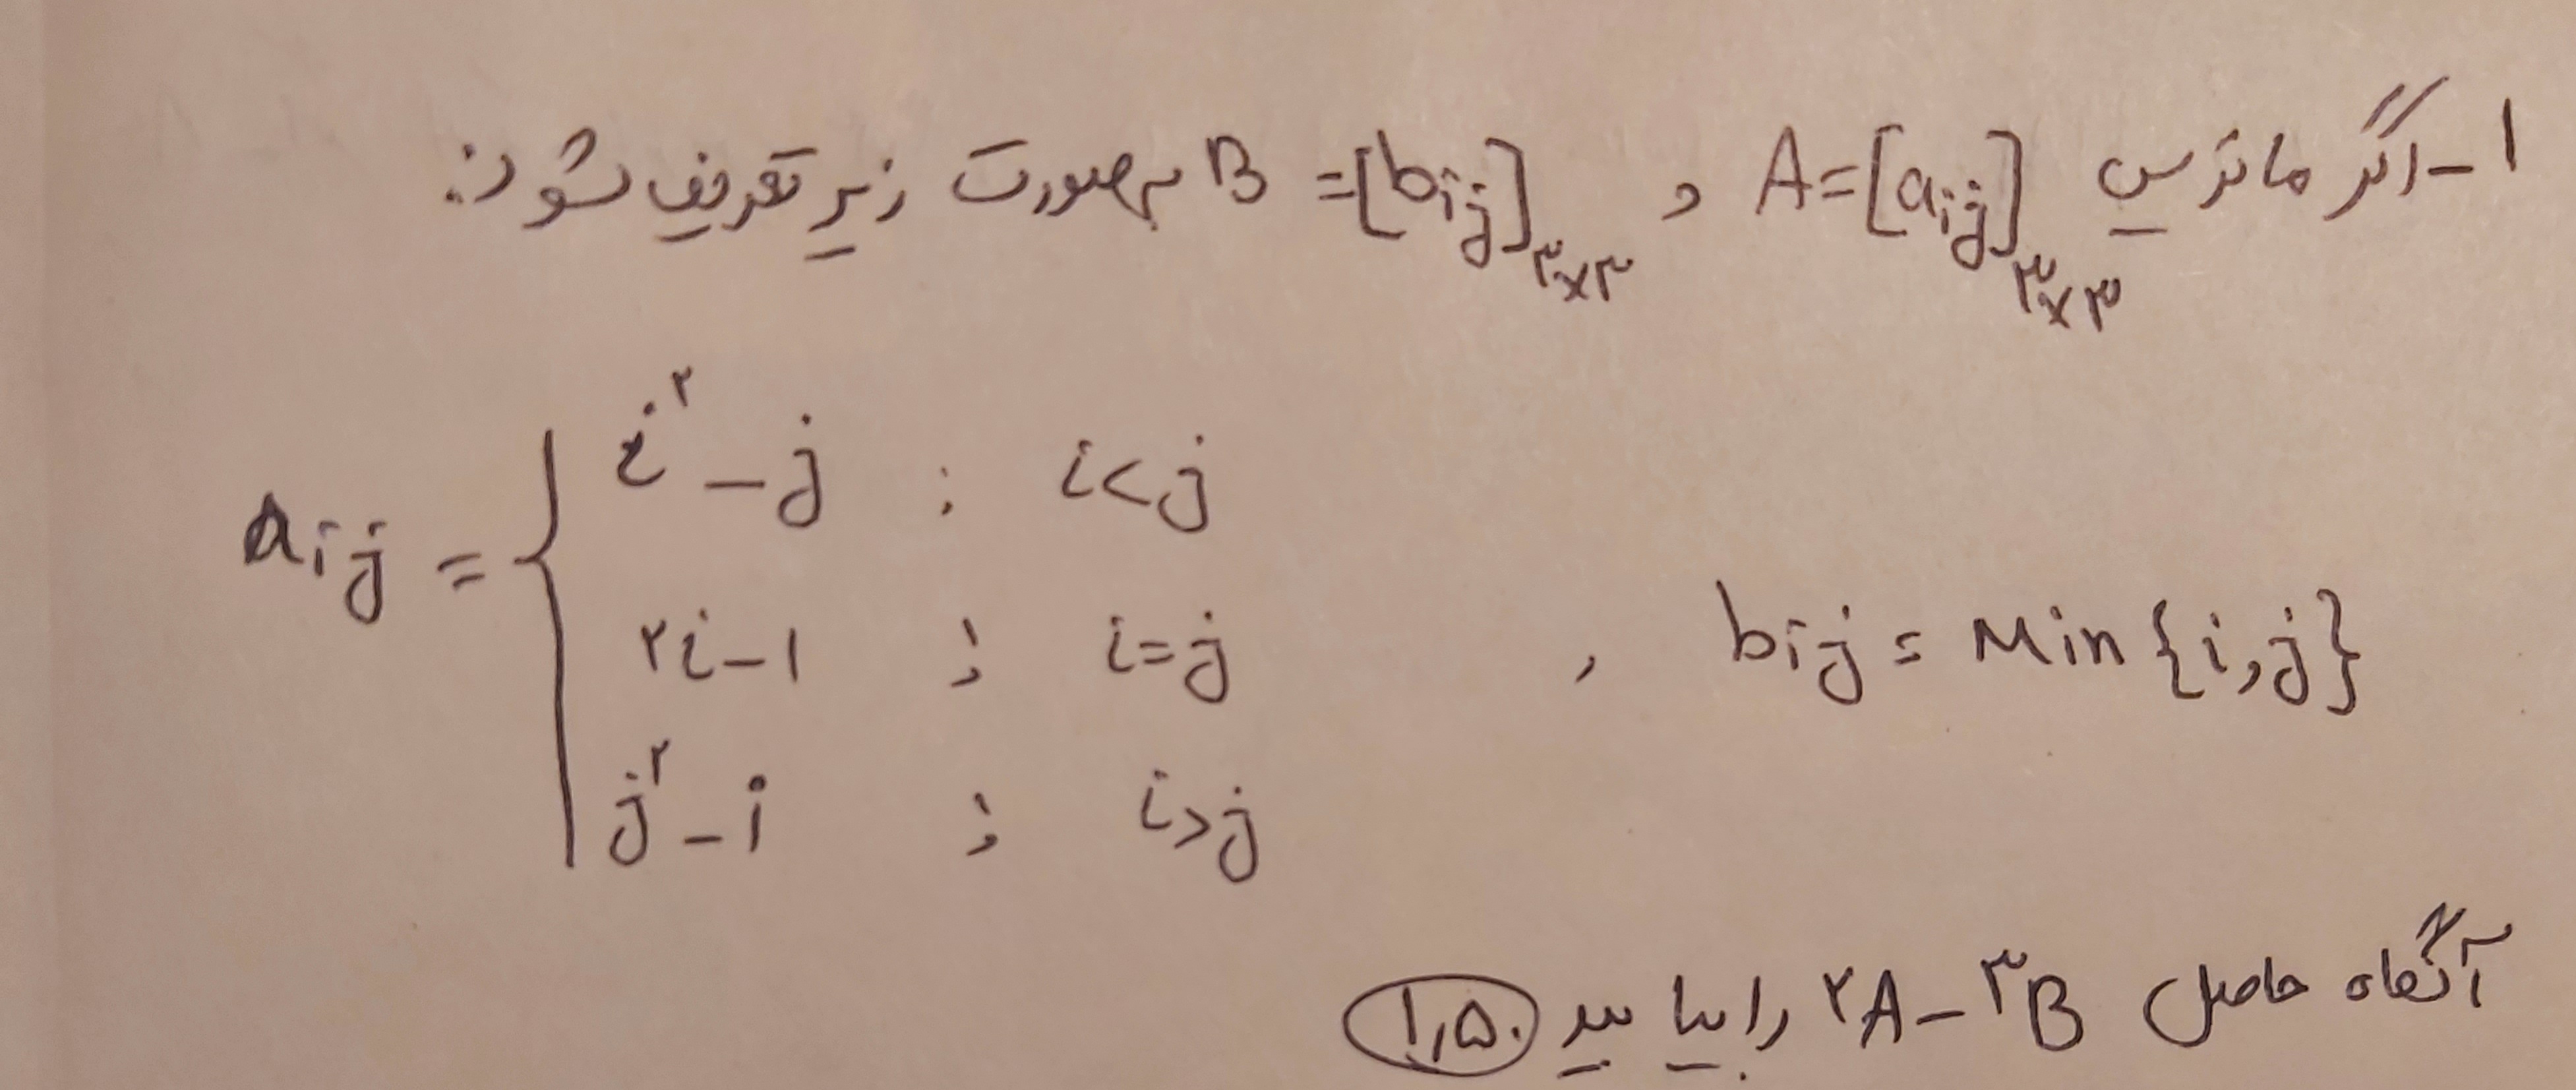 ۱- اگر ماتریس A=[aij]۳×۳ و B=[bij]۳×۳ بصورت زیر تعریف شود:
aij = { i۲ - j ; i<j
۲i-۱ ; i=j , bij = Min{i,j}
j۲ - i ; i>j
آنگاه حاصل ۲A-۳B را بیابید ۱,۵۰